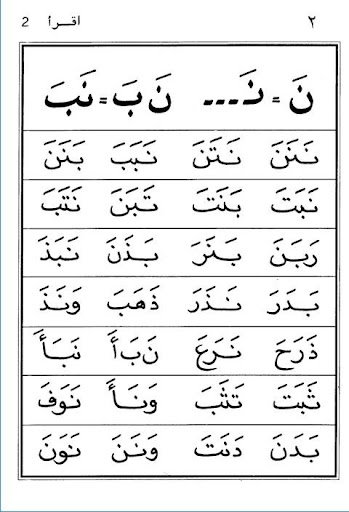 ٢ اقـرأ 2
نَ = نَـ... نَ بَ = نَبَ
نَنَنَ نَتَنَ نَبَبَ بَنَنَ
نَبَتَ بَنَتَ تَبَنَ نَتَبَ
رَبَنَ بَنَرَ بَذَنَ نَبَذَ
بَدَرَ نَذَرَ ذَهَبَ وَنَذَ
ذَرَحَ نَرَعَ نَ بَ أَ نَبَأَ
ثَبَتَ تَثَبَ وَنَأَ نَوَفَ
بَدَنَ دَنَتَ وَنَنَ نَوَنَ